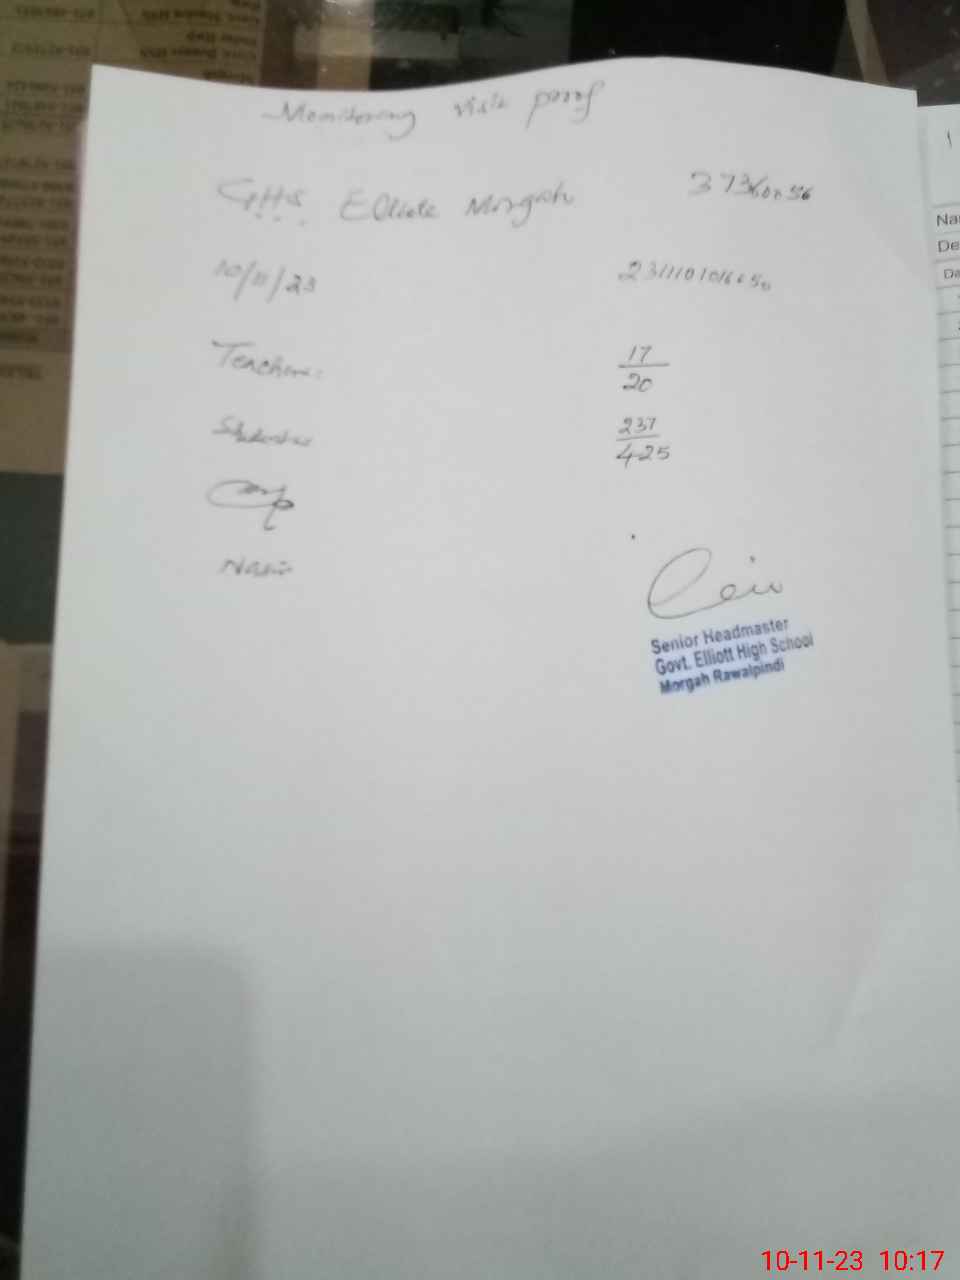 Monitoring visit proof
GHS Elliote Morgah 37360056
10/11/23
Teachers: 17/20
Students 237/425
Nasir
Senior Headmaster
Govt. Elliott High School
Morgah Rawalpindi
10-11-23 10:17